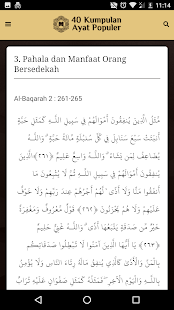 11:14
40 Kumpulan
Ayat Populer
3. Pahala dan Manfaat Orang
Bersedekah
Al-Baqarah 2 : 261-265
مَّثَلُ الَّذِينَ يُنفِقُونَ أَمْوَالَهُمْ فِي سَبِيلِ اللَّهِ كَمَثَلِ حَبَّةٍ
أَنبَتَتْ سَبْعَ سَنَابِلَ فِي كُلِّ سُنبُلَةٍ مِّائَةُ حَبَّةٍ وَاللَّهُ
يُضَاعِفُ لِمَن يَشَاءُ وَاللَّهُ وَاسِعٌ عَلِيمٌ ﴿٢٦١﴾ الَّذِينَ
يُنفِقُونَ أَمْوَالَهُمْ فِي سَبِيلِ اللَّهِ ثُمَّ لَا يُتْبِعُونَ مَا
أَنفَقُوا مَنًّا وَلَا أَذًى لَّهُمْ أَجْرُهُمْ عِندَ رَبِّهِمْ وَلَا خَوْفٌ
عَلَيْهِمْ وَلَا هُمْ يَحْزَنُونَ ﴿٢٦٢﴾ قَوْلٌ مَّعْرُوفٌ وَمَغْفِرَةٌ
خَيْرٌ مِّن صَدَقَةٍ يَتْبَعُهَا أَذًى وَاللَّهُ غَنِيٌّ حَلِيمٌ
﴿٢٦٣﴾ يَا أَيُّهَا الَّذِينَ آمَنُوا لَا تُبْطِلُوا صَدَقَاتِكُم
بِالْمَنِّ وَالْأَذَىٰ كَالَّذِي يُنفِقُ مَالَهُ رِئَاءَ النَّاسِ وَلَا يُؤْمِنُ
بِاللَّهِ وَالْيَوْمِ الْآخِرِ فَمَثَلُهُ كَمَثَلِ صَفْوَانٍ عَلَيْهِ تُرَابٌ